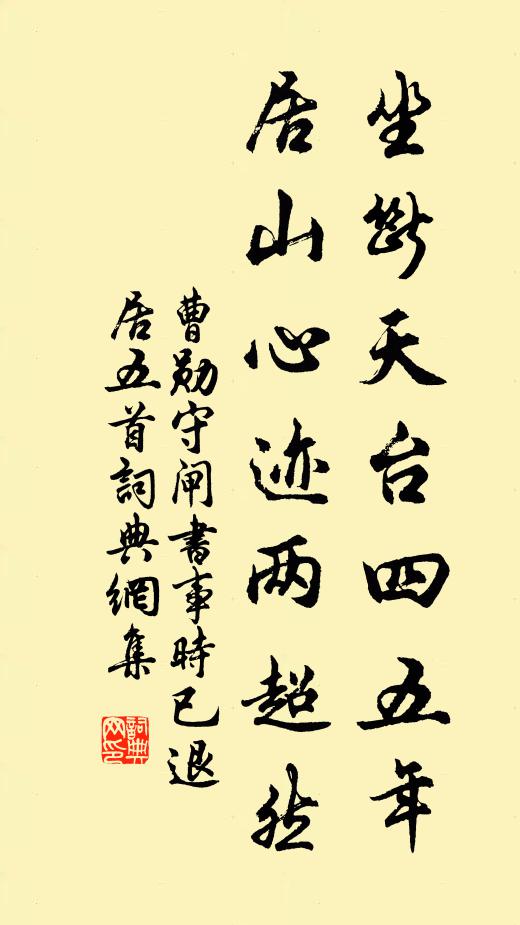 坐斷天台四五年
居山心迹两超然
曹勋守闸書事時已退
居五首詞典網集
詞典网印